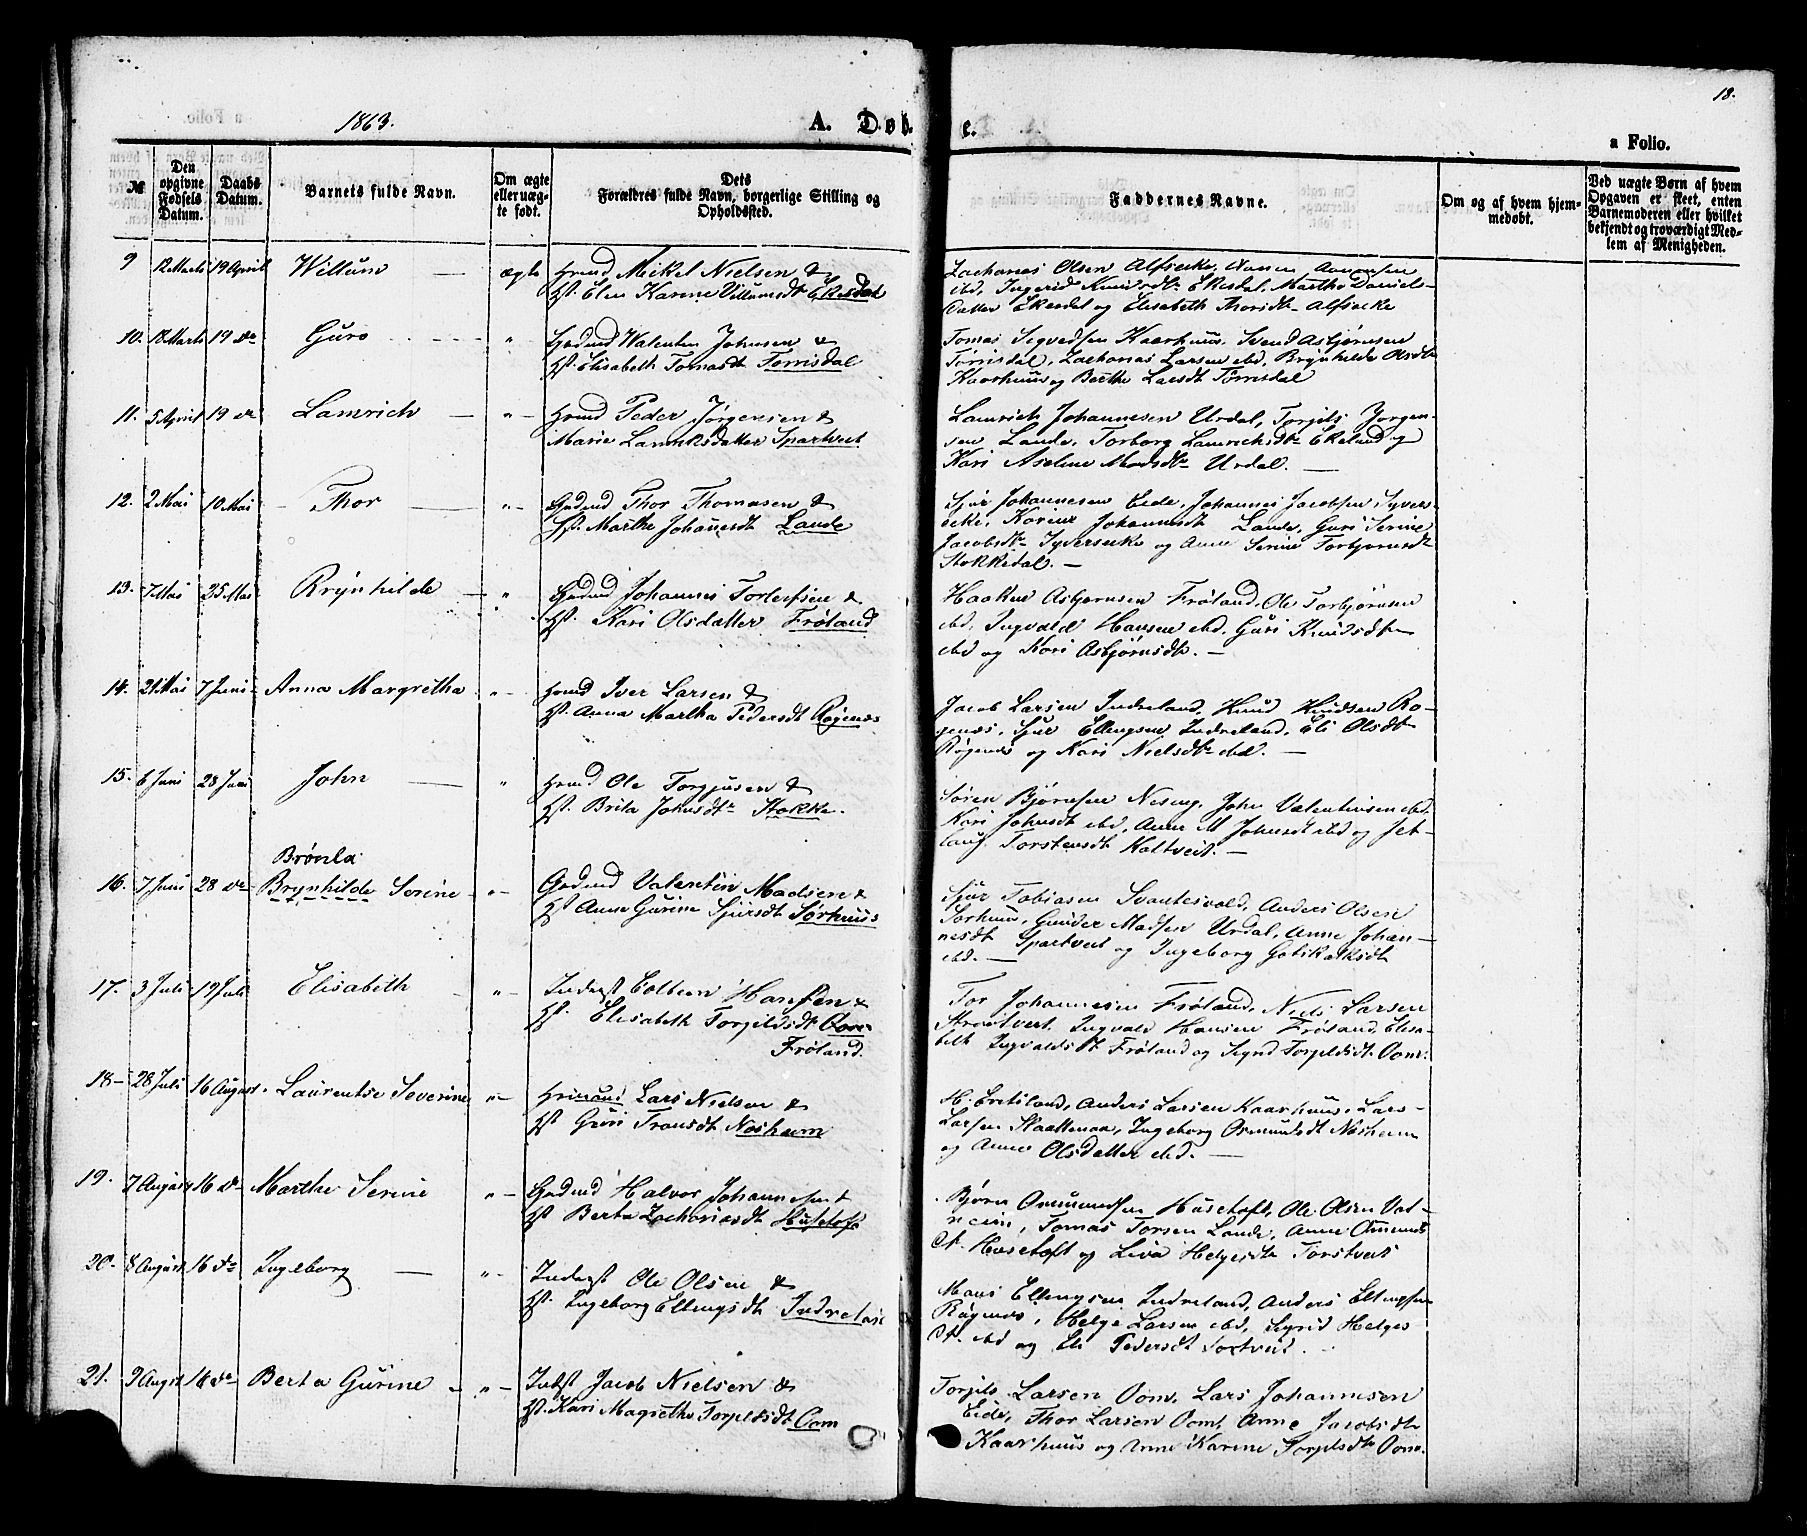 18.
1863.
A. Døbte.
a Folio.
№
Den opgivne Fødsels Datum.
Daabs Datum.
Barnets fulde Navn.
Om ægte eller uægte født.
Dets Forældres fulde Navn, borgerlige Stilling og Opholdssted.
Faddernes Navne.
Om og af hvem hjemmedøbt.
Ved uægte Børn af hvem Opgaven er skeet, enten Barnemoderen eller hvilket bekjendt og troværdigt Medlem af Menigheden.
9 12 Marts 19 April Willum ægte Grmd Mikel Nielsen &
Hst. Elen Karine Villumsdt Ekesdal
Zacharias Olsen Alfsecke, Aanen Aanensen
ibd, Ingerid Knudsdtr Ekesdal, Marthe Daniels-
datter Ekesdal og Elisabeth Thorsdtr Alfsecke
10. 12 Marts 19 do Guro "
Gadmd Valentin Johnsen &
Hst. Elisabeth Tomasdt Tonnisdal
Tomas Sigvedsen Kaarhuus, Svend Asbjørnsen
Tonnisdal, Zacharias Larsen ibd, Brynhilde Olsdtr
Kaarhuus og Berthe Larsdt Tonnisdal
11. 5 April 19 do Lamrich "
Grmd Peder Jørgensen &
Marie Lamriksdatter Spartveit
Lamrich Johannesen Urdal, Torjils Jørgen-
sen Lande, Torborg Lamrichsdtr Ekeland og
Kari Aseline Madsdtr Urdal.
12. 2 Mai 10 Mai Thor "
Gadmd Thor Thomasen &
Hst. Marthe Johannesdt Lande
Sjur Johannesen Eide, Johannes Jacobsen Syvers-
ecke, Karine Johannesdt Lande, Guri Serine
Jacobsdtr Syversecke og Anne Serine Torbjørnsdtr
Stokkedal.
13. 7 Mai 25 Mai Brynhilde "
Gadmd Johannes Torleifsen &
Hst. Kari Olsdatter Frøland
Haaken Asbjørnsen Frøland, Ole Torbjørnsen
ibd, Ingvald Hansen ibd, Guri Knudsdtr
ibd og Kari Asbjørnsdtr.
14. 21 Mai 7 Juni Anna Margretha "
Grmd Iver Larsen &
Hst. Anna Martha Pedersdt Røgenes
Jacob Larsen Indreland, Knud Knudsen Rø-
genes, Sjur Ellingsen Indreland, Eli Olsdtr
Røgenes og Kari Nielsdtr ibd.
15. 6 Juni 28 Juni John "
Grmd Ole Torjusen &
Hst. Brita Johnsdtr Stokke.
Søren Bjørnsen Nesvog, John Valentinsen ibd,
Kari Johnsdt ibd, Anne M Johnsdt ibd og Jet-
laug Torstensdt Holtveit.
Brønla
16. 7 Juni 28 do Brynhilde Serine "
Gadmd Valentin Madsen &
Hst Anne Gurine Sjursdt Sørhuus
Sjur Tobiasen Svartesvold, Anders Olsen
Sørhuus, Gunder Madsen Urdal, Anne Johan-
nesdt Spartveit og Ingeborg Gotskalksdt
ibd.
17. 3 Juli 19 Juli Elisabeth "
Inderst Colben Hansen &
Hst. Elisabeth Torjilsdt Oom
Frøland.
Tor Johannesen Frøland, Niels Larsen
Ingvald Hansen Frøland, Elisa-
beth Ingvaldsdt Frøland og Signe Torjilsdt Oom.
18 28 Juli 16 August Laurentse Severine "
Grmd Lars Nielsen &
Hst Guri Tronsdt Nosheim
H. Eretsland, Anders Larsen Kaarhuus, Lars
Larsen Skaattemaa, Ingeborg Osmundsdt Nosheim
og Anne Olsdatter ibd.
19. 7 August 16 do Marthe Serine "
Gadmd Halvor Johannesen &
Hst Berta Zachariasdt Husetoft
Bjørn Osmundsen Husetoft, Ole Olsen Vat-
neim, Tomas Torsen Lande, Anne Osmunds
dt. Husetoft og Liva Helgesdtr Torstveit
20. 8 August 16 do Ingeborg "
Inderst Ole Olsen &
Hst. Ingeborg Ellingsdt Indreland
Hans Ellingsen Indreland, Anders Ellingsen
Røgenes, Helge Larsen ibd, Sigrid Helges
dt. ibd og Eli Pedersdt
21. 9 August 16 do Berta Gurine "
Inderst Jacob Nielsen &
Hst. Kari Magrethe Torjilsdt Oom
Torjils Larsen Oom, Lars Johannesen
Eide, Thor Larsen Oom, Anne Jacobsdtr
Kaarhuus og Anne Karine Torjilsdtr Oom.